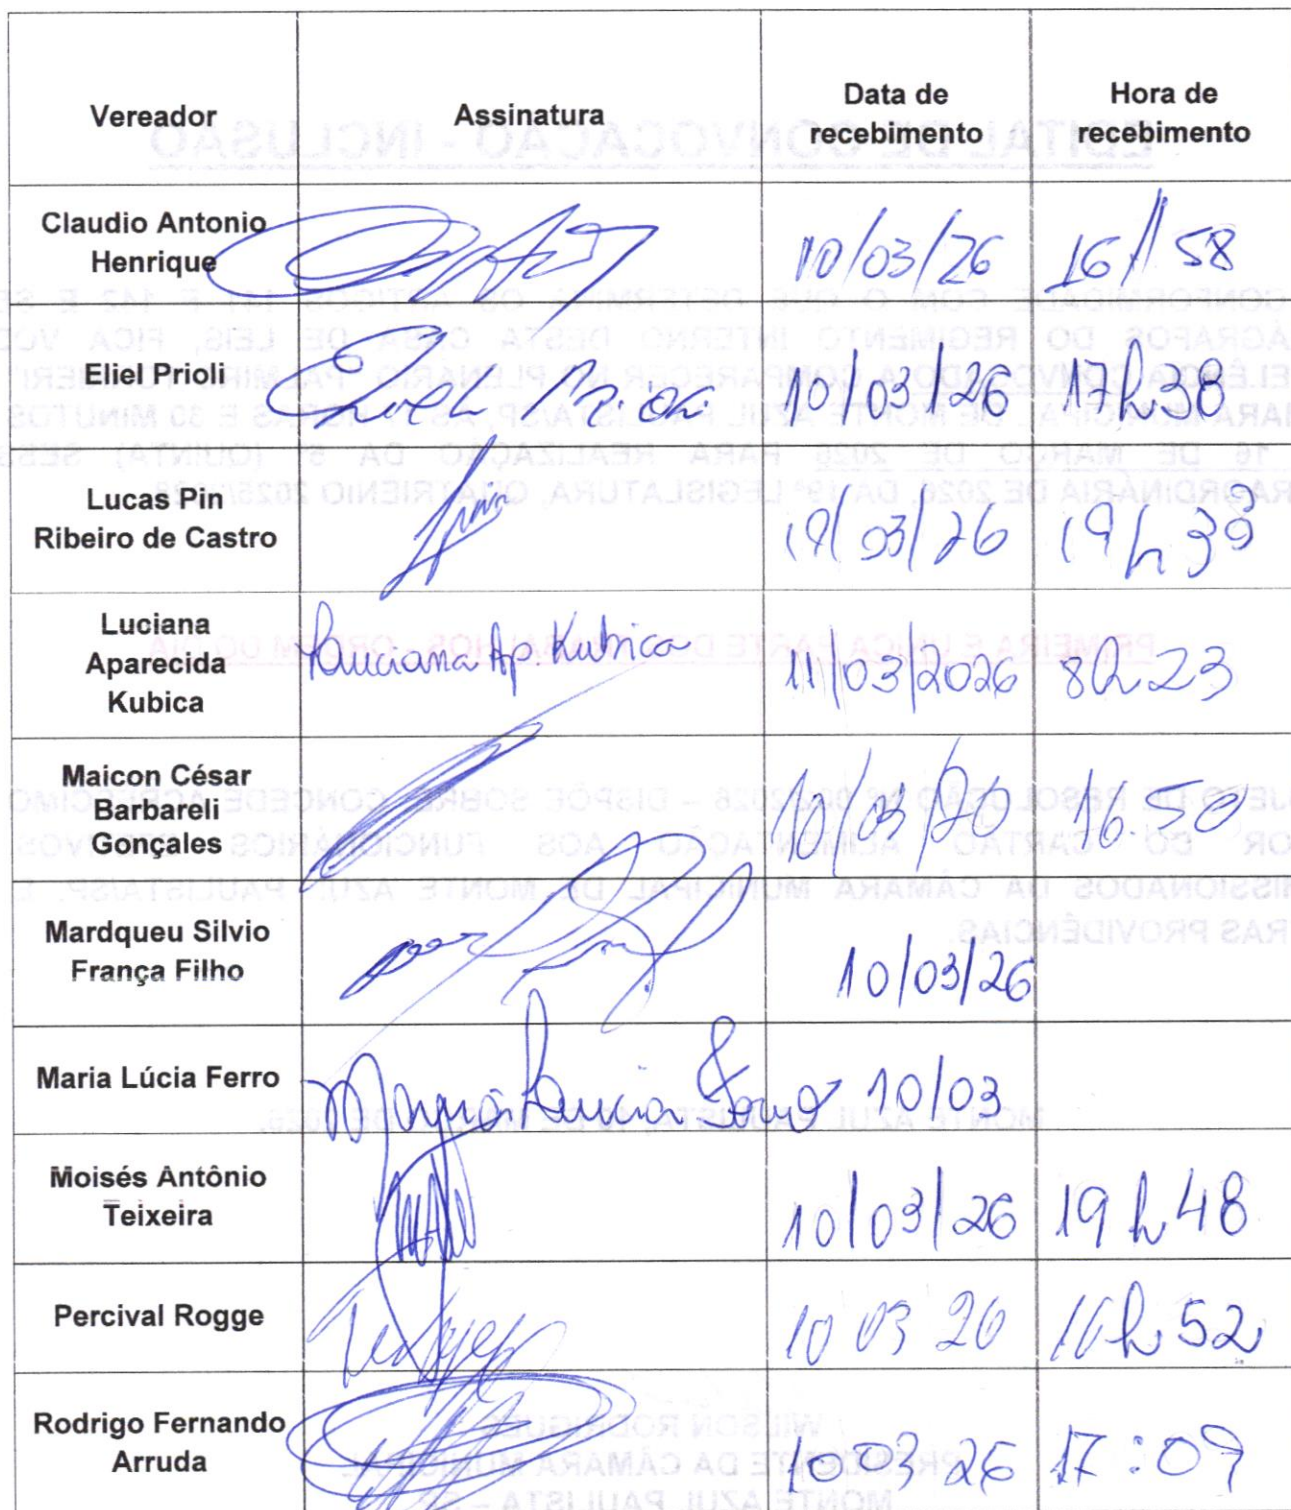 Vereador Assinatura Data de recebimento Hora de recebimento
Claudio Antonio Henrique 10/03/26 16h58
Eliel Prioli Eliel Prioli 10/03/26 17h38
Lucas Pin Ribeiro de Castro 10/03/26 19h39
Luciana Aparecida Kubica Luciana Ap. Kubica 11/03/2026 8h23
Maicon César Barbareli Gonçales 10/03/26 16:50
Mardqueu Silvio França Filho 10/03/26
Maria Lúcia Ferro Maria Lucia Ferro 10/03
Moisés Antônio Teixeira 10/03/26 19h48
Percival Rogge 10 03 26 16h52
Rodrigo Fernando Arruda 10 03 26 17:09